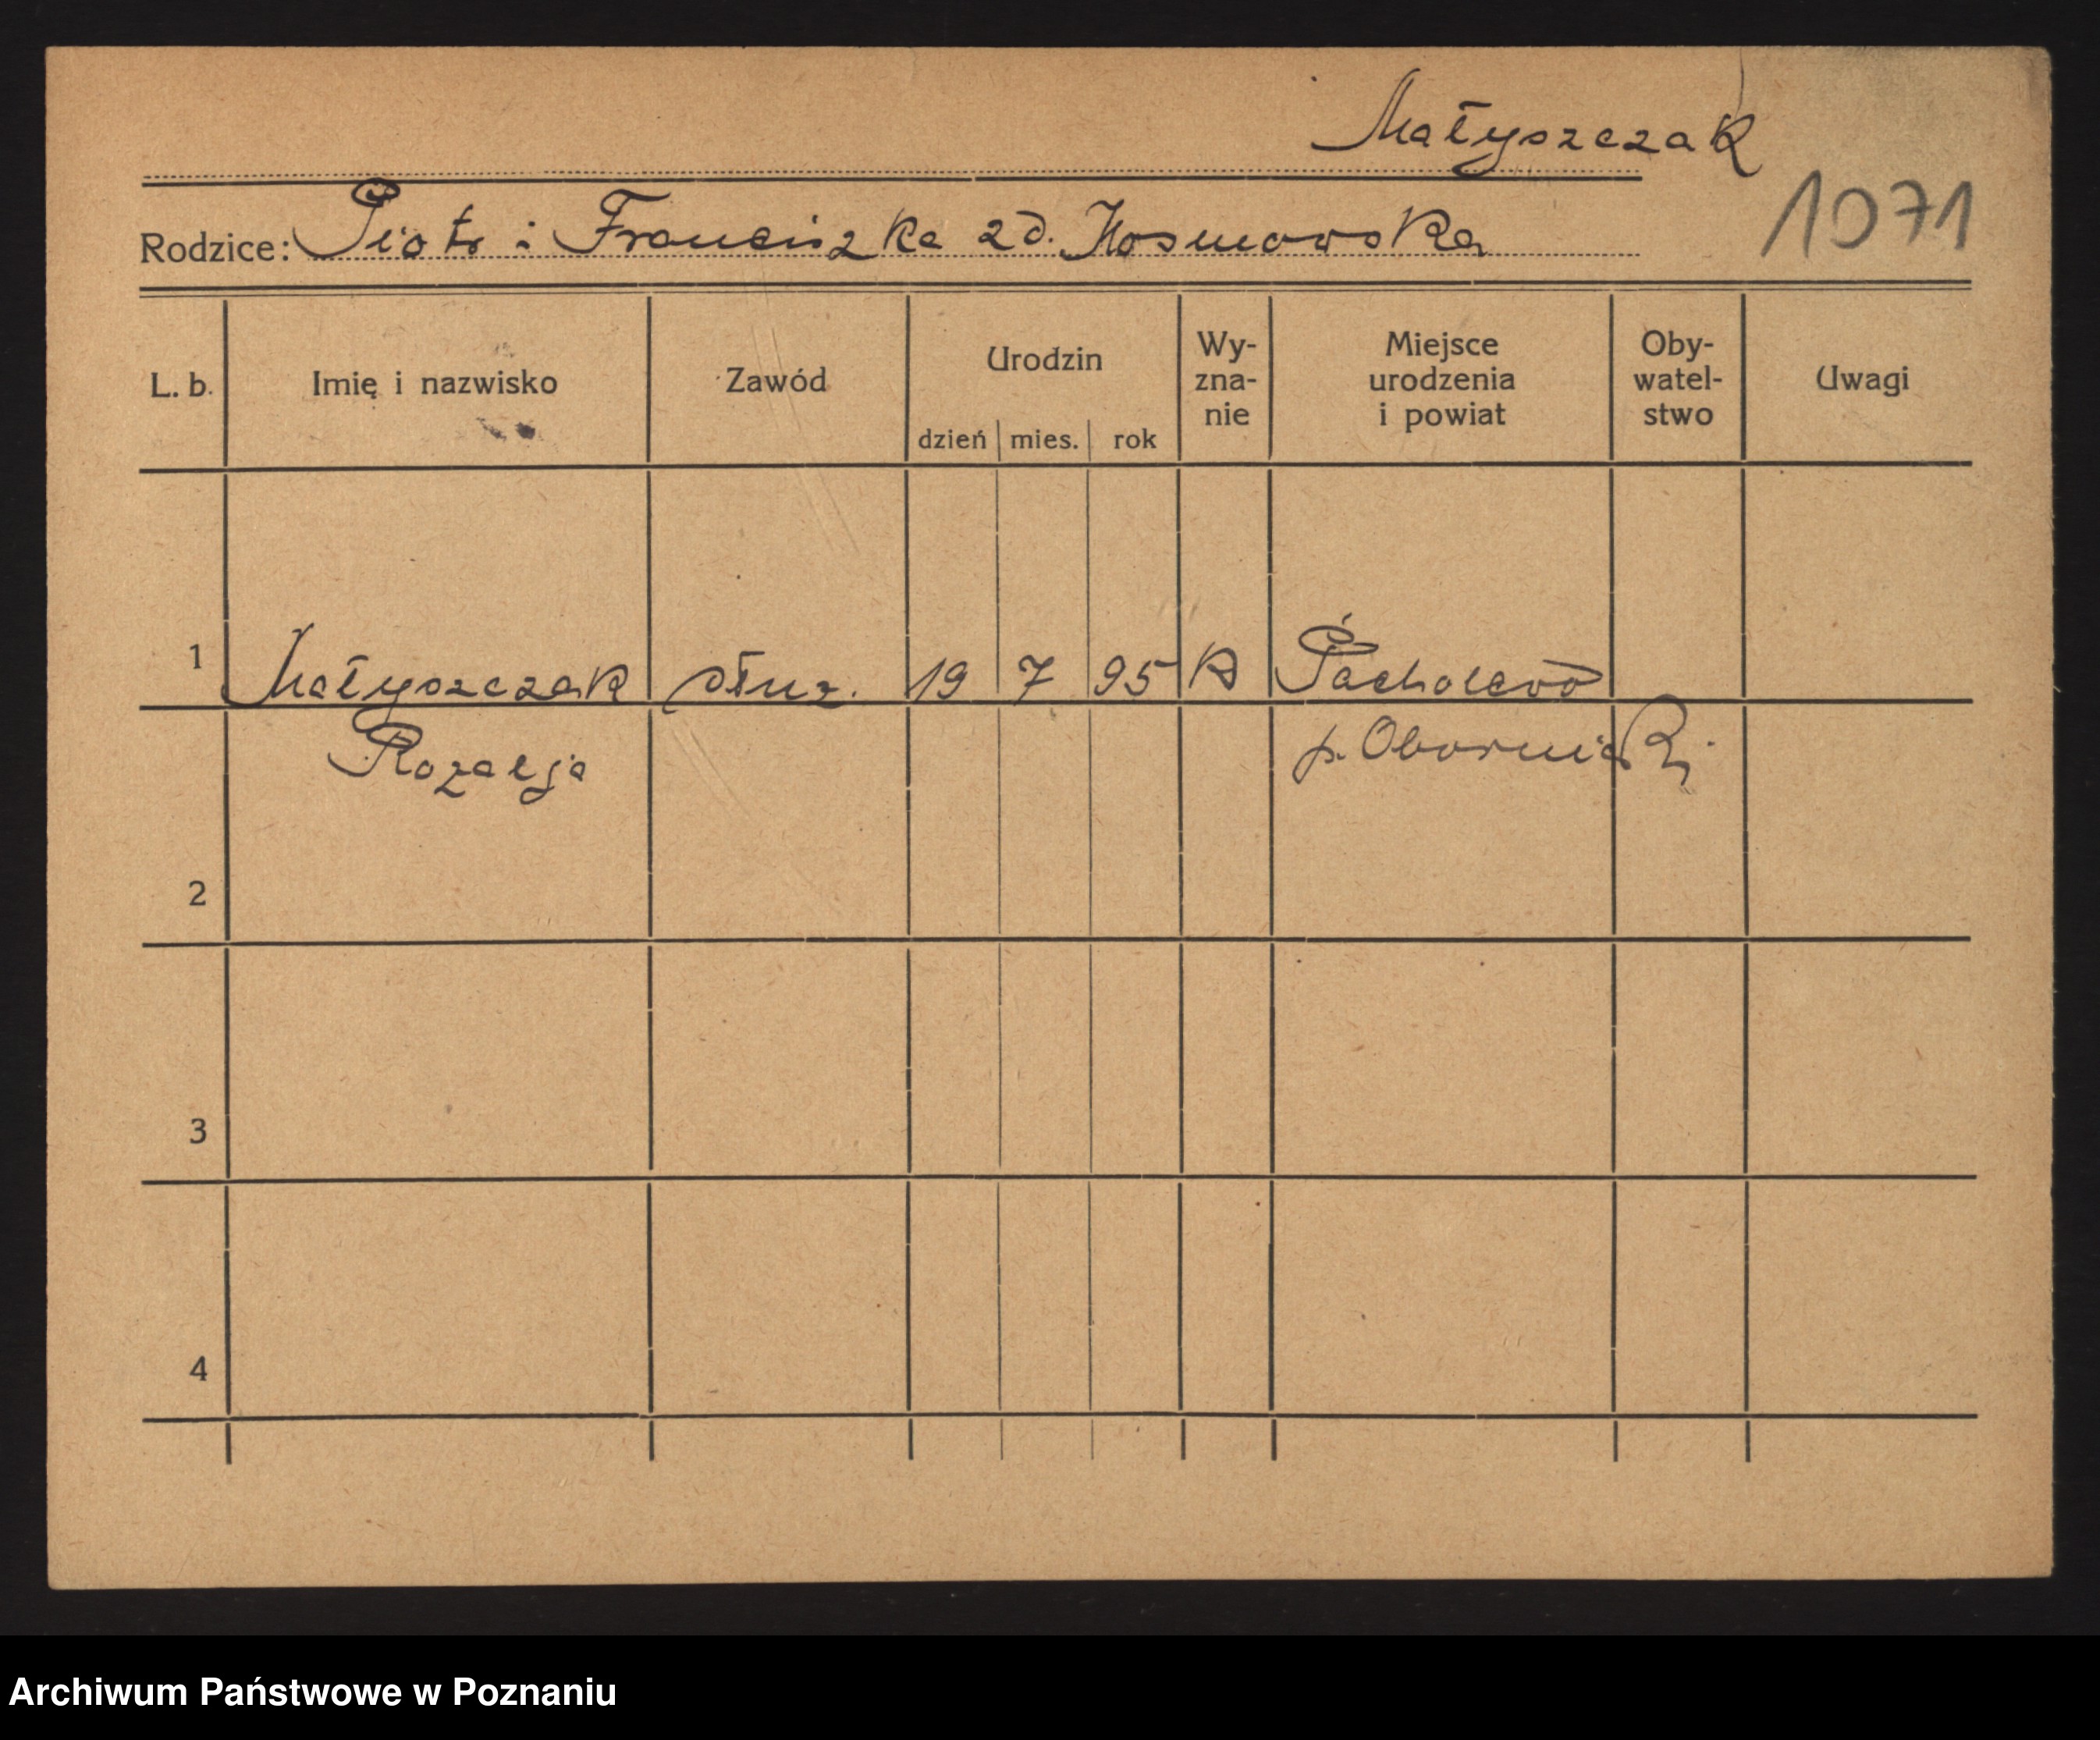 Małyszczak
Rodzice: Piotr i Franciszka zd. Kosmowska
1071
L. b. Imię i nazwisko Zawód Urodzin dzień mies. rok Wy-zna-nie Miejsce urodzenia i powiat Oby-watel-stwo Uwagi
1 Małyszczak służ. 19 7 95 K Pacholewo
Rozalja p. Oborniki
2
3
4
Archiwum Państwowe w Poznaniu